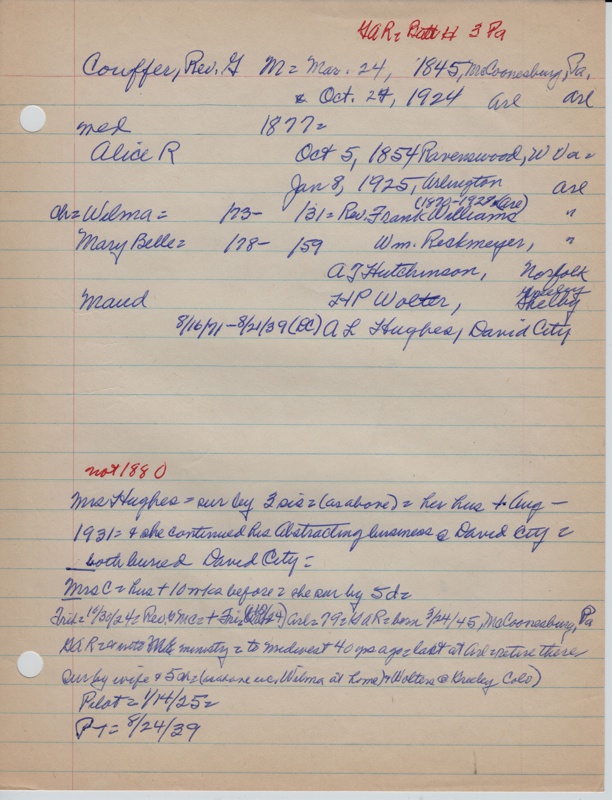 GAR= Batt H 3 Pa
Couffer, Rev. G M= Mar. 24, 1845, McConnesburg, Pa.
& Oct. 24, 1924 Arl Arl
med 1877=
Alice R Oct 5, 1854 Ravenswood, W Va=
Jan 8, 1925, Arlington Arl
(1870-1928 Arl)
ch= Wilma= 173- 131= Rev. Frank Williams "
Mary Belle= 178- 159 Wm. Reckmeyer, "
A T Hutchinson, Norfolk
Maud H P Wolter, Shelby
8/16/71-8/21/39 (DC) A L Hughes, David City
not 1880
Mrs Hughes= sur by 3 sis= (as above)= her hus + Aug-
1931= & she continued his Abstracting business @ David City=
both buried David City=
Mrs C= hus + 10 wks before= she sur by 5 d=
Frid= 10/30/24= Rev. Mc= + Fri= Arl= 79= GAR= born 3/24/45, McConnesburg, Pa
GAR= into ME ministry= to midwest 40 yrs ago= last at Arl= retire there
sur by wife & 5 ch= (as above Wilma at home) & Wolters @ Greeley Colo)
Pilot= 1/14/25=
PT= 8/24/39